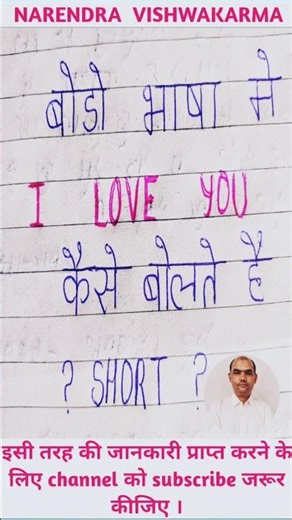 NARENDRA VISHWAKARMA
बोडो भाषा मे
I LOVE YOU
कैसे बोलते है
? SHORT ?
इसी तरह की जानकारी प्राप्त करने के
लिए channel को subscribe जरूर
कीजिए ।